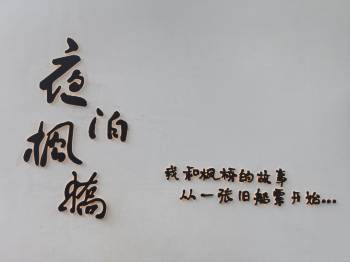 夜泊
楓橋
我和枫桥的故事
从一张旧船票开始...